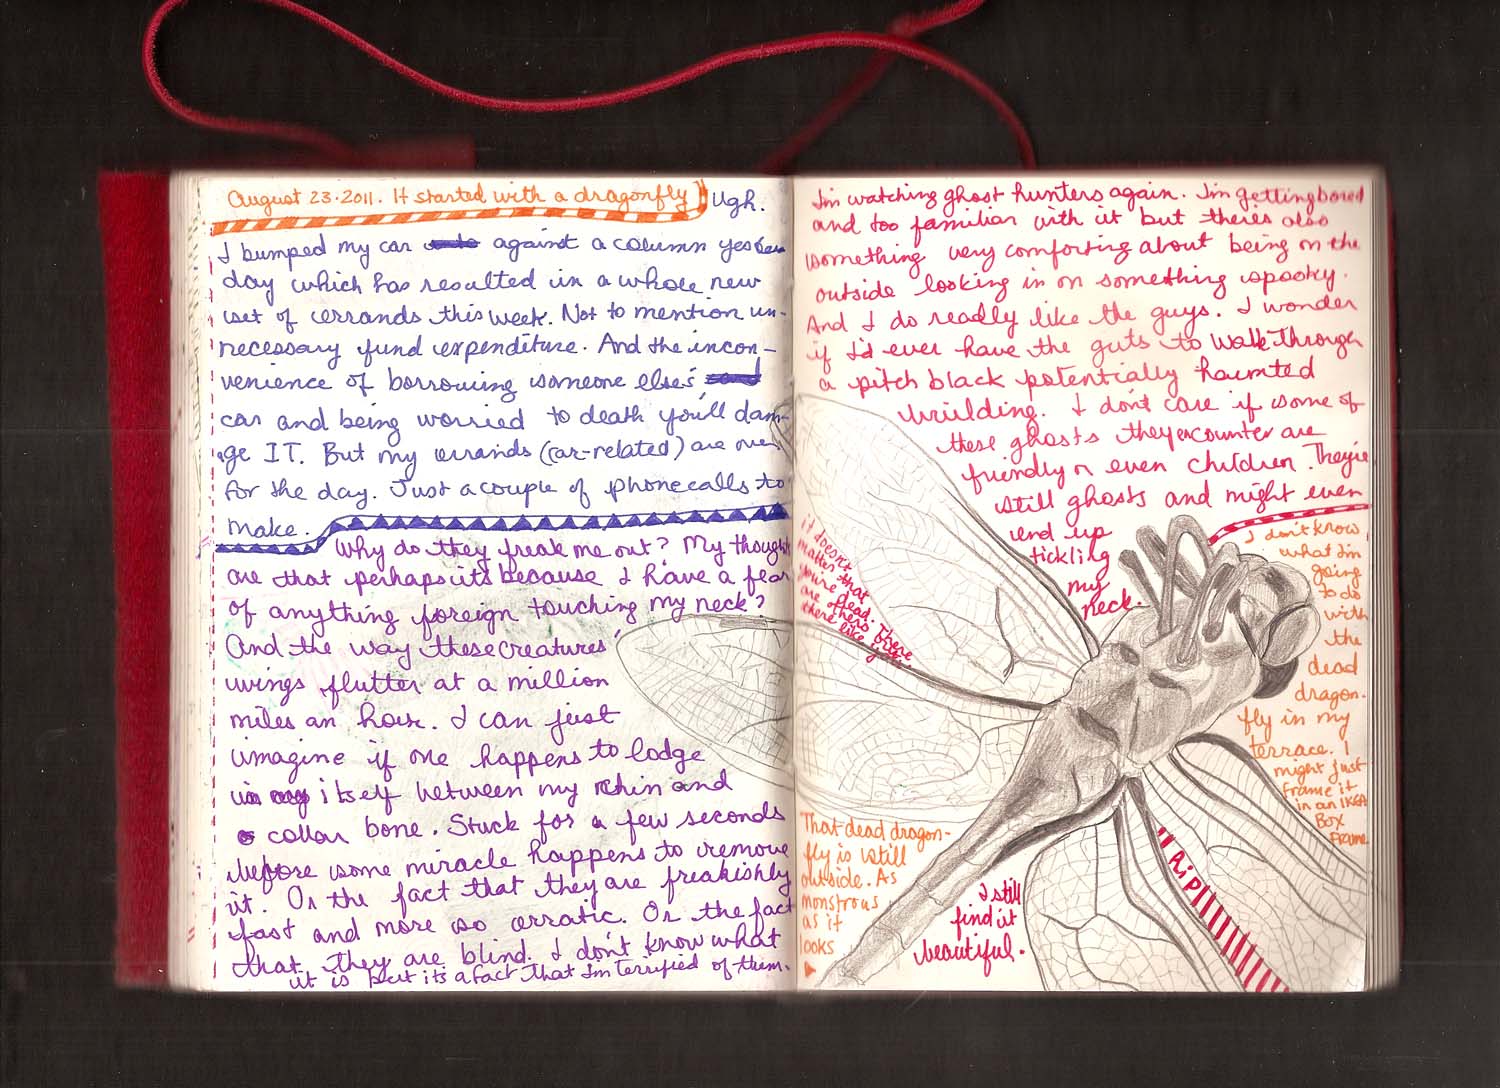 August 23.2011. It started with a dragonfly
Ugh.
I bumped my car against a column yester
day which has resulted in a whole new
set of errands this week. Not to mention un-
necessary fund expenditure. And the incon-
venience of borrowing someone else's
car and being worried to death you'll dam-
age IT. But my errands (car-related) are over
for the day. Just a couple of phonecalls to
make.
Why do they freak me out? My thoughts
are that perhaps its because I have a fear
of anything foreign touching my neck?
And the way these creatures'
wings flutter at a million
miles an hour. I can just
imagine if one happens to lodge
itself between my chin and
collar bone. Stuck for a few seconds
before some miracle happens to remove
it. Or the fact that they are freakishly
fast and more so erratic. Or the fact
that they are blind. I don't know what
it is but its a fact that I'm terrified of them.
I'm watching ghost hunters again. I'm getting bored
and too familiar with it but there's also
something very comforting about being on the
outside looking in on something spooky.
And I do really like the guys. I wonder
if I'd ever have the guts to walk through
a pitch black potentially haunted
building. I don't care if some of
these ghosts they encounter are
friendly or even children. They're
still ghosts and might even
end up
tickling
my
neck.
it doesn't
matter that
you're dead. There
are others out
there like you...
I don't know
what I'm
going
to do
with
the
dead
dragon-
fly in my
terrace. I
might just
frame it
in an IKEA
Box
Frame
That dead dragon-
fly is still
outside. As
monstrous
as it
looks
I still
find it
beautiful.
RIP!